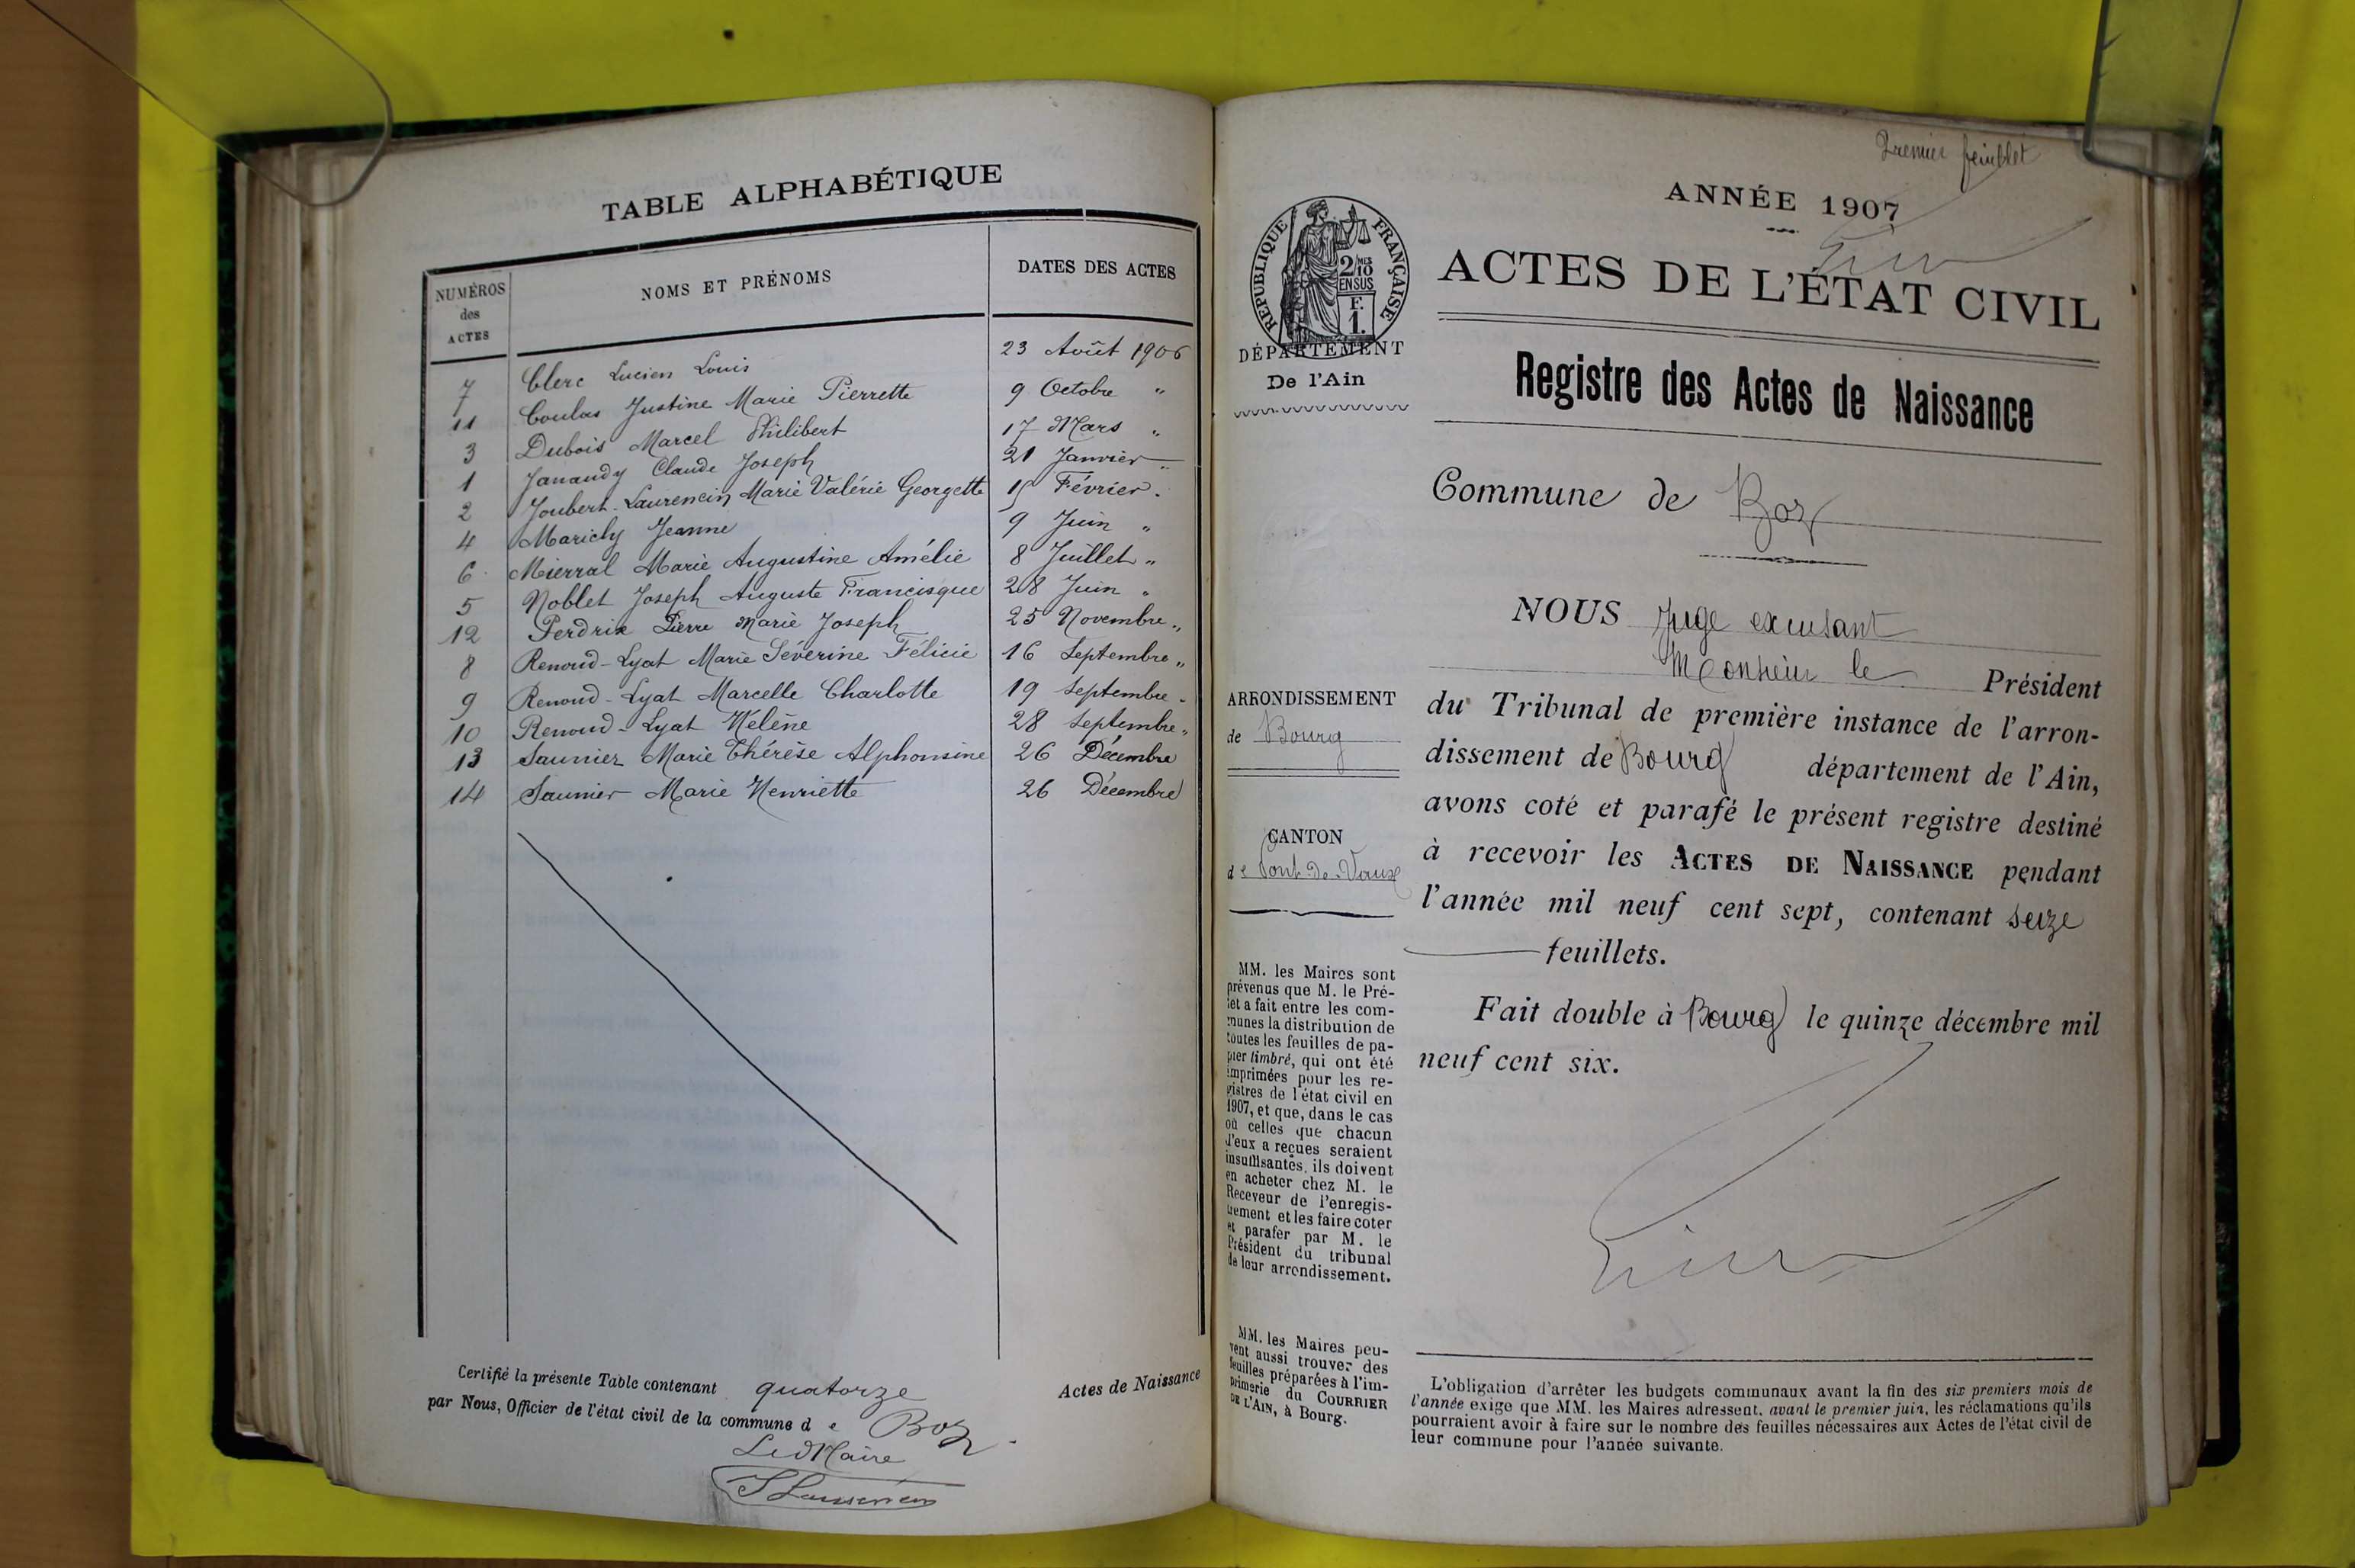 TABLE ALPHABÉTIQUE
NUMÉROS des ACTES
NOMS ET PRÉNOMS
DATES DES ACTES
7 Clerc Lucien Louis 23 Août 1906
11 Coulas Justine Marie Pierrette 9 Octobre "
3 Dubois Marcel Philibert 17 Mars "
1 Janaudy Claude Joseph 21 Janvier "
2 Joubert-Laurencin Marie Valérie Georgette 15 Février "
4 Marichy Jeanne 9 Juin "
6 Mierral Marie Augustine Amélie 8 Juillet "
5 Noblet Joseph Auguste Francisque 28 Juin "
12 Perdrix Pierre Marie Joseph 25 Novembre "
8 Renoud-Lyat Marie Séverine Félicie 16 Septembre "
9 Renoud-Lyat Marcelle Charlotte 19 Septembre "
10 Renoud-Lyat Hélène 28 Septembre "
13 Saunier Marie Thérèse Alphonsine 26 Décembre
14 Saunier Marie Henriette 26 Décembre
Certifié la présente Table contenant quatorze Actes de Naissance
par Nous, Officier de l'état civil de la commune de Boz
Le Maire
Premier feuillet
ANNÉE 1907
ACTES DE L'ÉTAT CIVIL
Registre des Actes de Naissance
Commune de Boz
RÉPUBLIQUE FRANÇAISE
2/10 MES
EN SUS
F.
1.
DÉPARTEMENT
De l'Ain
ARRONDISSEMENT
de Bourg
CANTON
de Pont-de-Vaux
NOUS Juge excusant
Monsieur le Président
du Tribunal de première instance de l'arron-
dissement de Bourg département de l'Ain,
avons coté et parafé le présent registre destiné
à recevoir les ACTES DE NAISSANCE pendant
l'année mil neuf cent sept, contenant seize
feuillets.
Fait double à Bourg le quinze décembre mil
neuf cent six.
MM. les Maires sont
prévenus que M. le Pré-
fet a fait entre les com-
munes la distribution de
toutes les feuilles de pa-
pier timbré, qui ont été
imprimées pour les re-
gistres de l'état civil en
1907, et que, dans le cas
où celles que chacun
d'eux a reçues seraient
insuffisantes, ils doivent
en acheter chez M. le
Receveur de l'enregis-
trement et les faire coter
et parafer par M. le
Président du tribunal
de leur arrondissement.
MM. les Maires peu-
vent aussi trouver des
feuilles préparées à l'im-
primerie du COURRIER
DE L'AIN, à Bourg.
L'obligation d'arrêter les budgets communaux avant la fin des six premiers mois de
l'année exige que MM. les Maires adressent, avant le premier juin, les réclamations qu'ils
pourraient avoir à faire sur le nombre des feuilles nécessaires aux Actes de l'état civil de
leur commune pour l'année suivante.